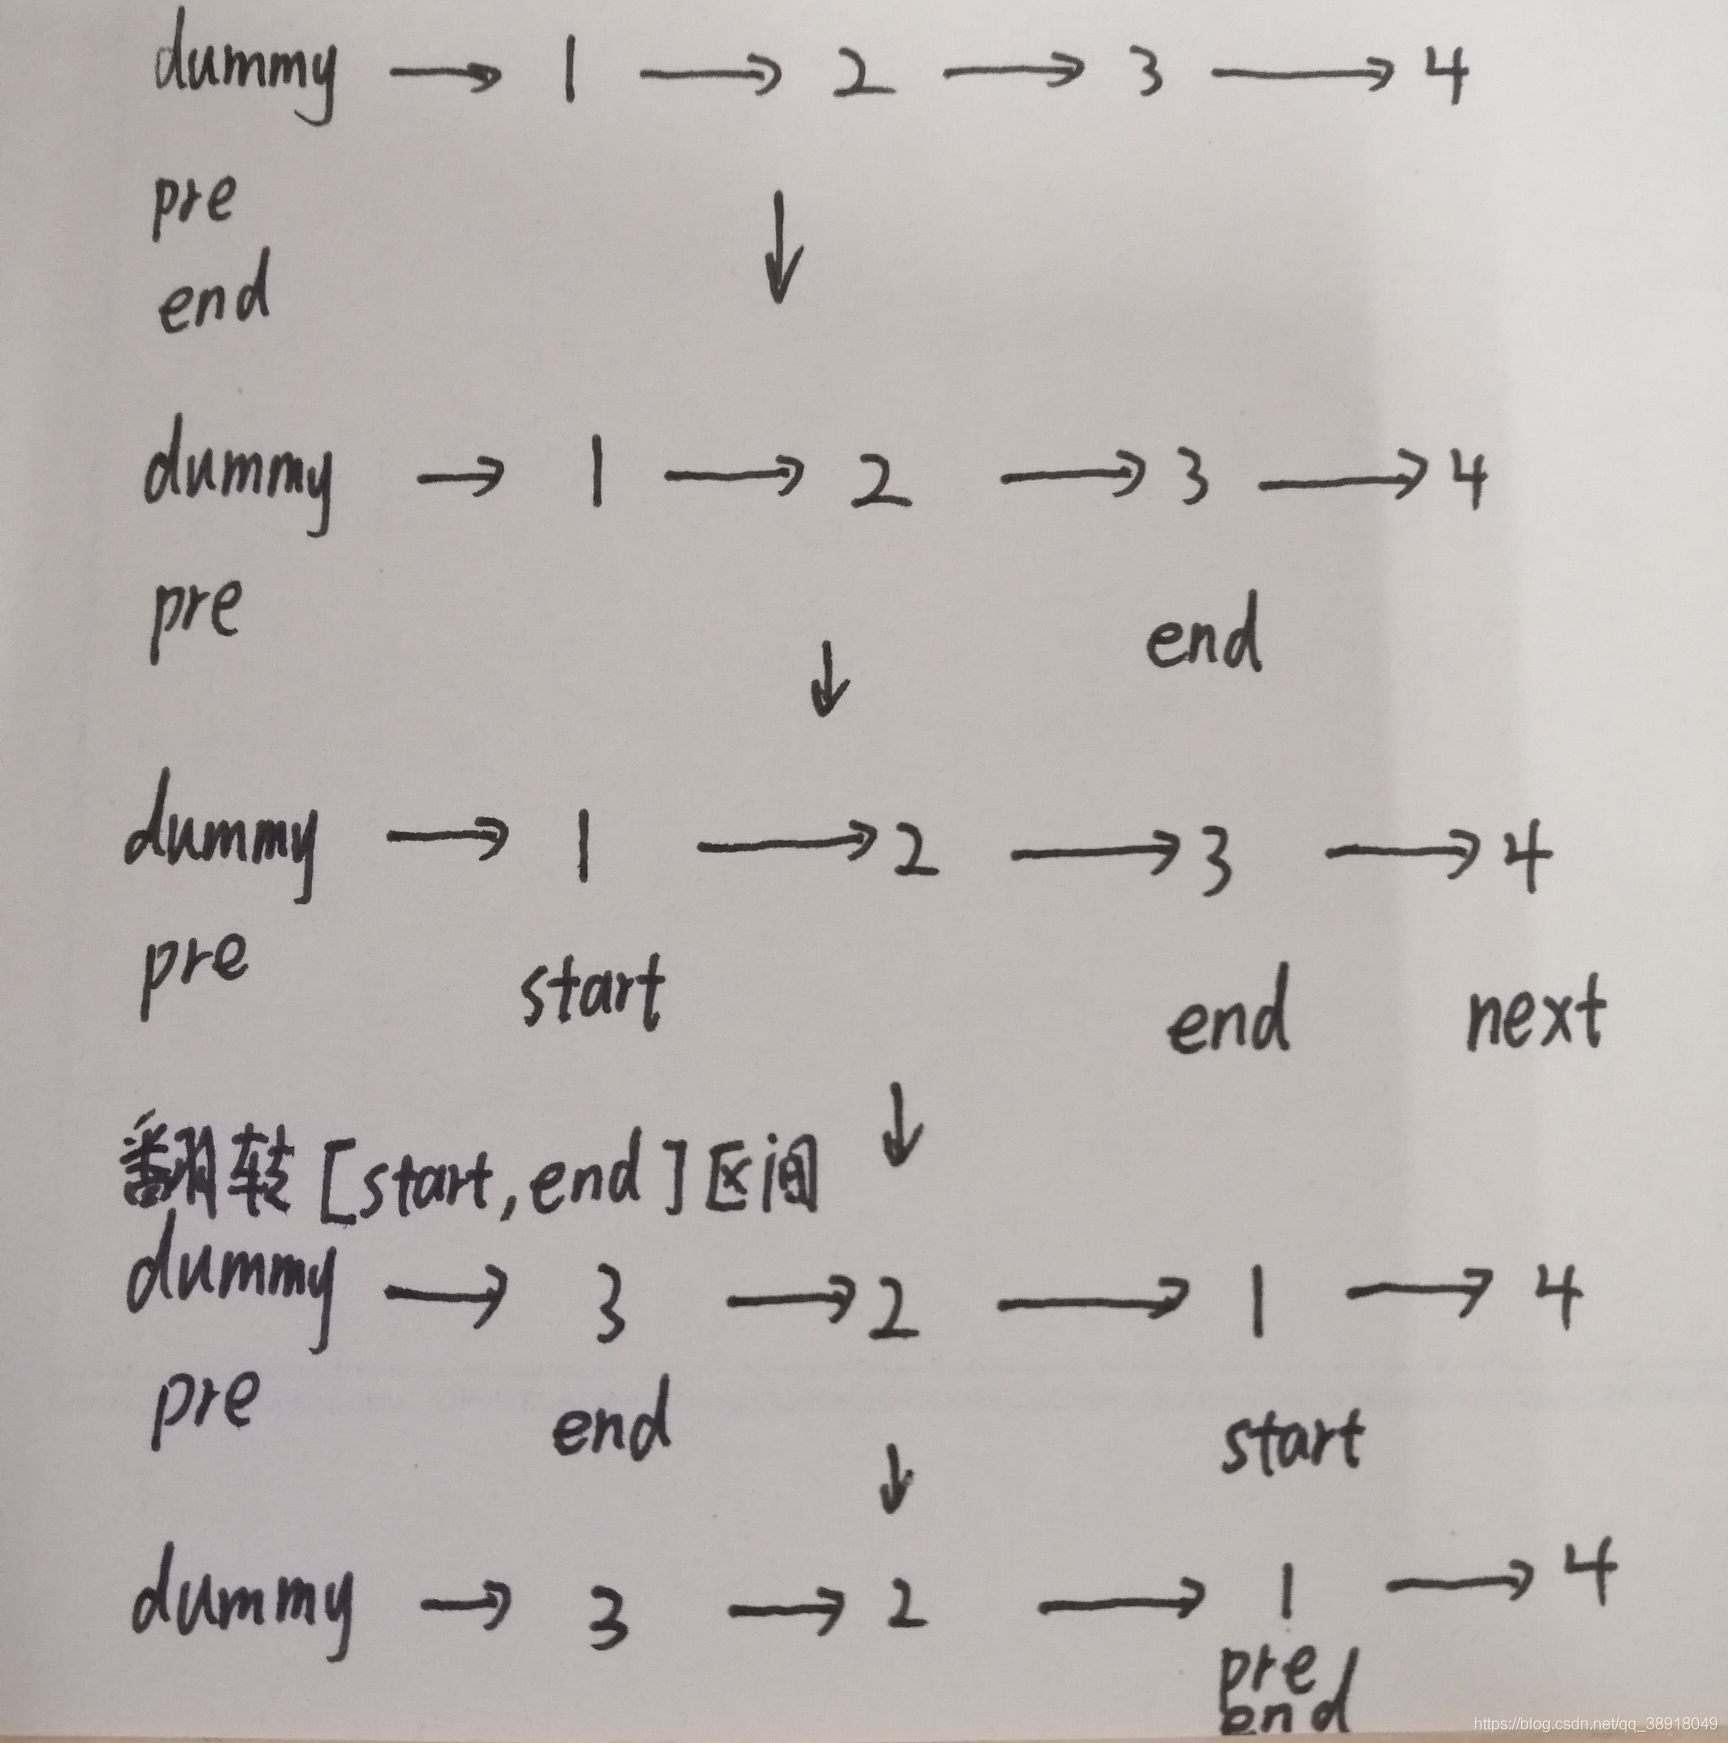 dummy → 1 → 2 → 3 → 4
pre
↓
end
dummy → 1 → 2 → 3 → 4
pre end
↓
dummy → 1 → 2 → 3 → 4
pre start end next
↓
翻转[start,end]区间
dummy → 3 → 2 → 1 → 4
pre end start
↓
dummy → 3 → 2 → 1 → 4
pre
end
https://blog.csdn.net/qq_38918049